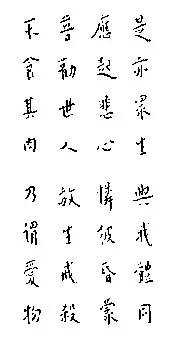 是亦眾生 與我體同
應起悲心 憐彼昏蒙
普勸世人 放生戒殺
不食其肉 乃謂愛物